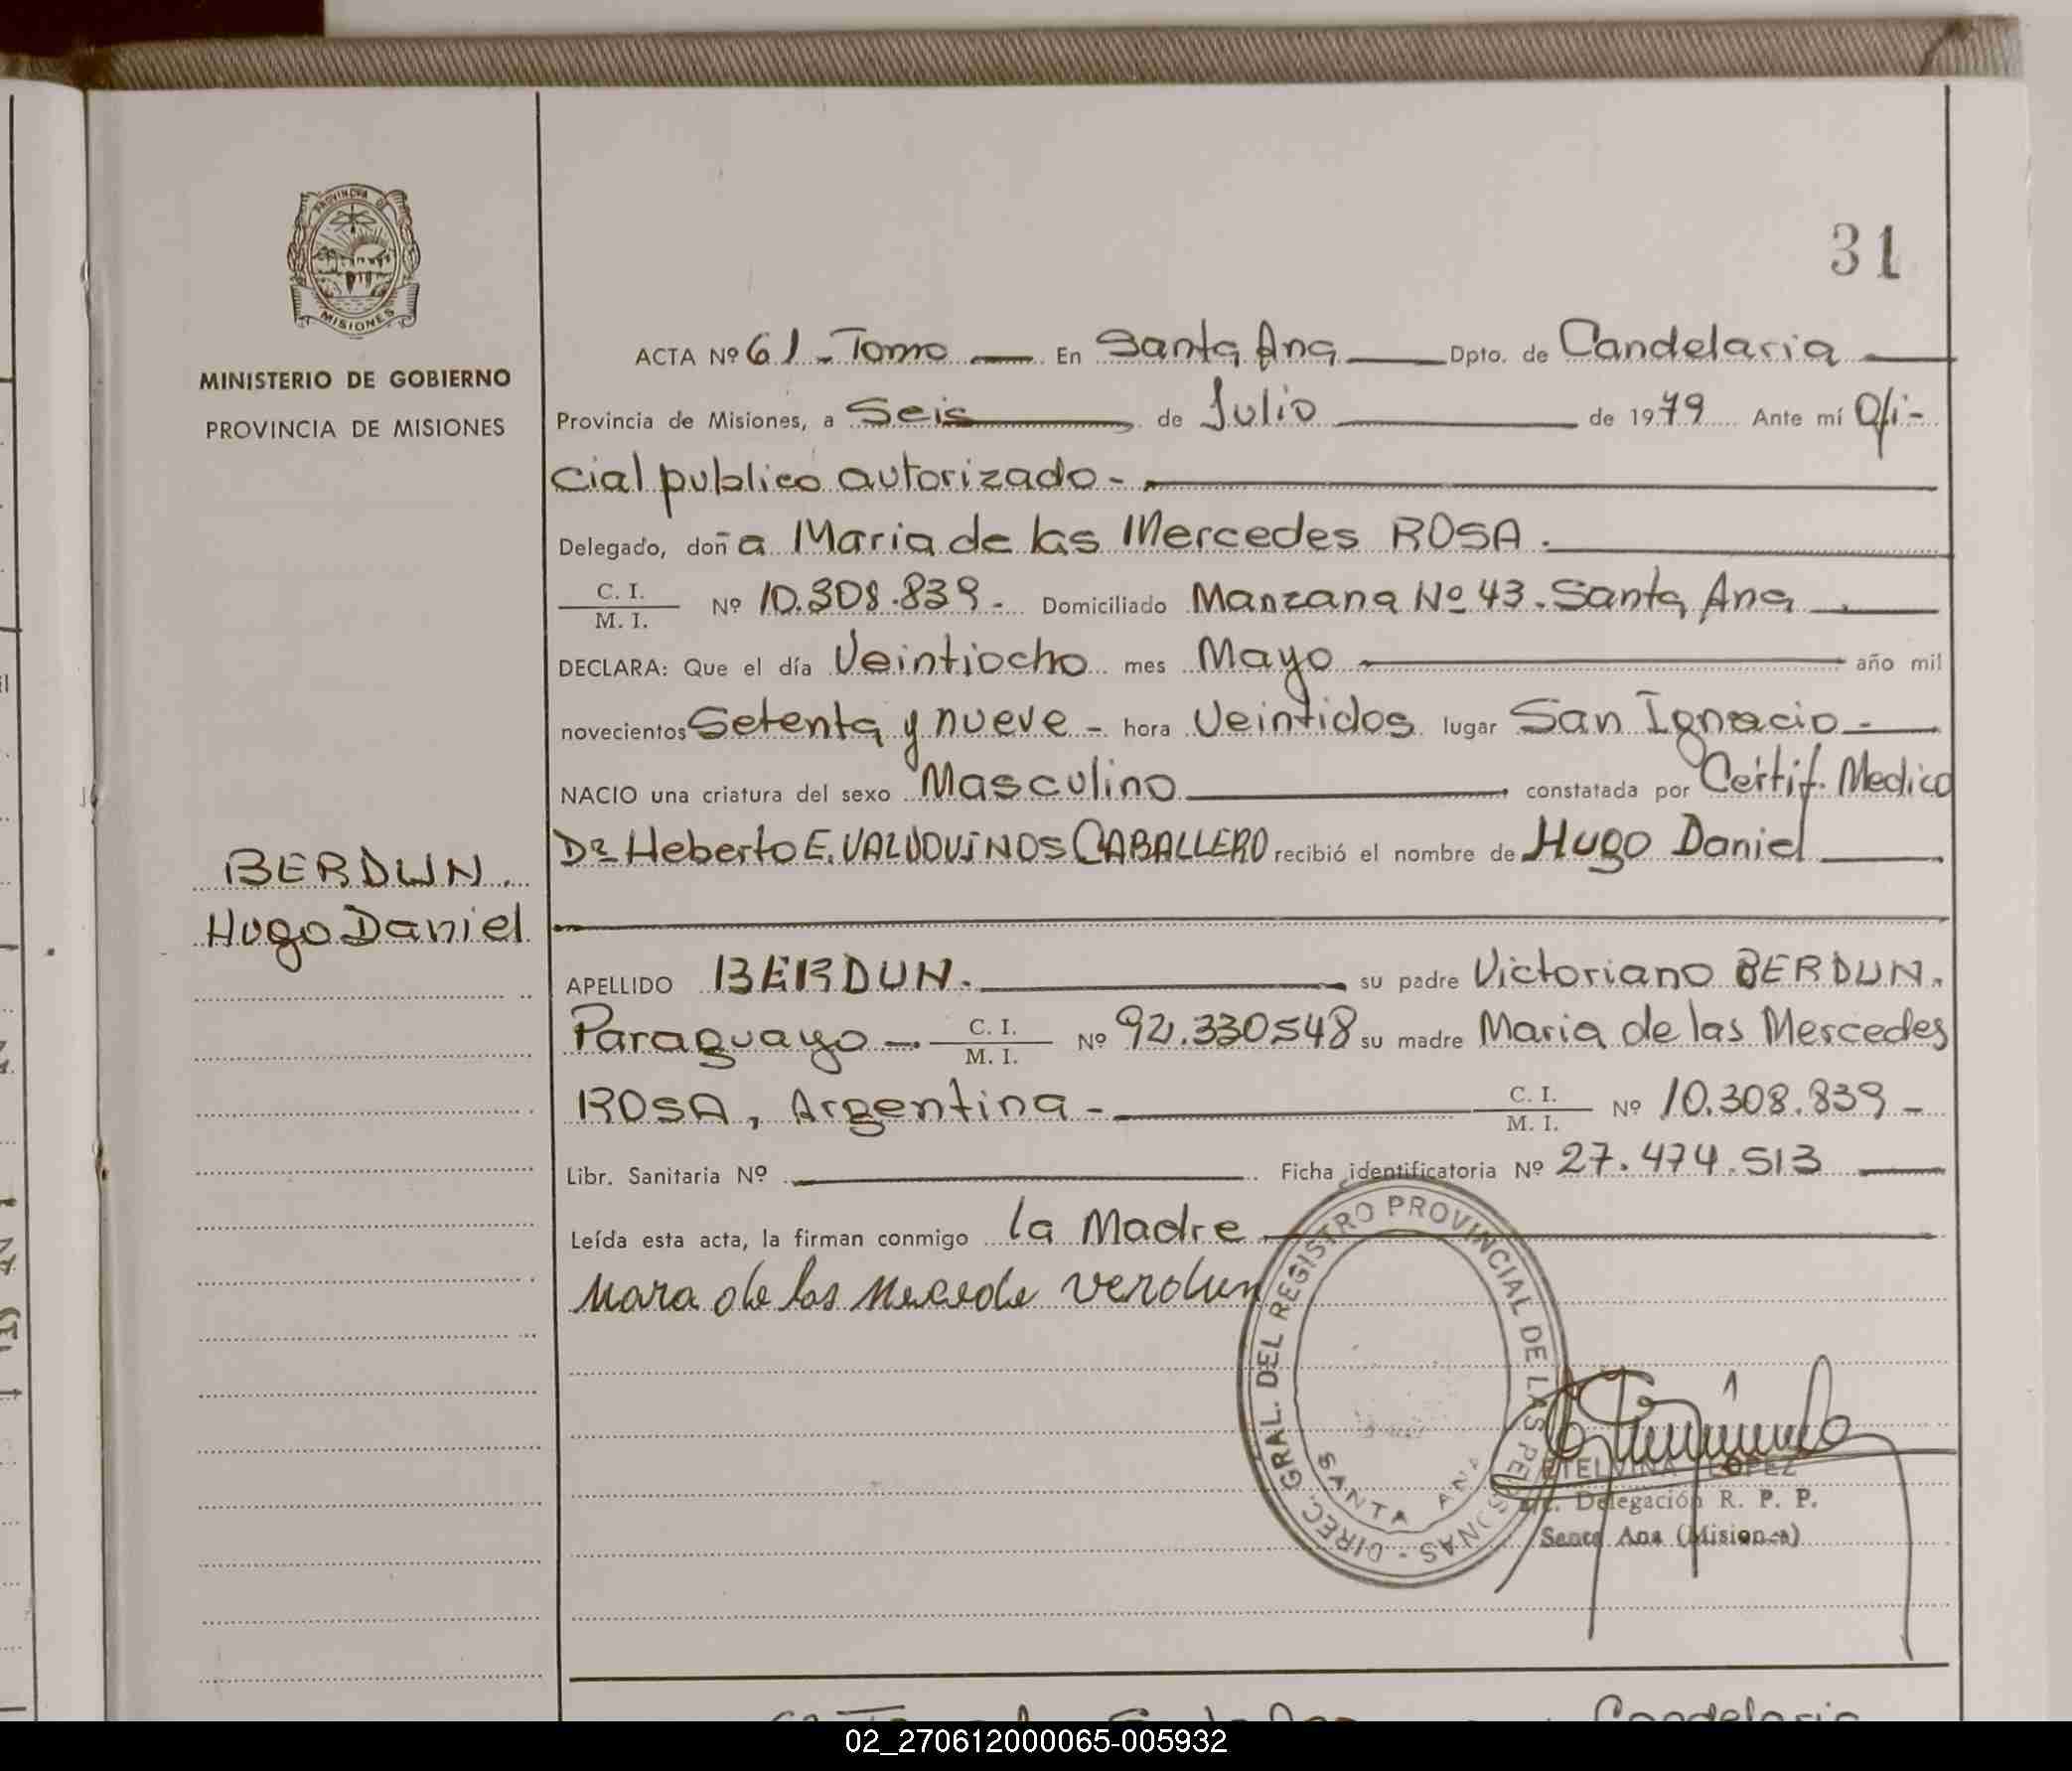 PROVINCIA DE
MISIONES
MINISTERIO DE GOBIERNO
PROVINCIA DE MISIONES
BERDUN.
Hugo Daniel
31
ACTA Nº 61 - Tomo — En Santa Ana — Dpto. de Candelaria —
Provincia de Misiones, a Seis — de Julio — de 1979 Ante mí Ofi-
cial publico autorizado - —
Delegado, doña Maria de las Mercedes ROSA. —
C. I. / M. I. Nº 10.308.839.- Domiciliado Manzana Nº 43. Santa Ana —
DECLARA: Que el día Veintiocho mes Mayo — año mil
novecientos Setenta y nueve - hora Veintidos lugar San Ignacio - —
NACIO una criatura del sexo Masculino — constatada por Certif. Medico
Dr Heberto E. VALDOVINOS CABALLERO recibió el nombre de Hugo Daniel —
APELLIDO BERDUN. — su padre Victoriano BERDUN.
Paraguayo -. C. I. / M. I. Nº 92.330548 su madre Maria de las Mercedes
ROSA, Argentina - — C. I. / M. I. Nº 10.308.839 -
Libr. Sanitaria Nº — Ficha identificatoria Nº 27.474.513 —
Leída esta acta, la firman conmigo la Madre —
Mara de las Mecede verdun
DIREC. GRAL. DEL REGISTRO PROVINCIAL DE LAS PERSONAS -
SANTA ANA
ETELVINA LOPEZ
Delegación R. P. P.
Santa Ana (Misiones)
Candelaria
02_270612000065-005932